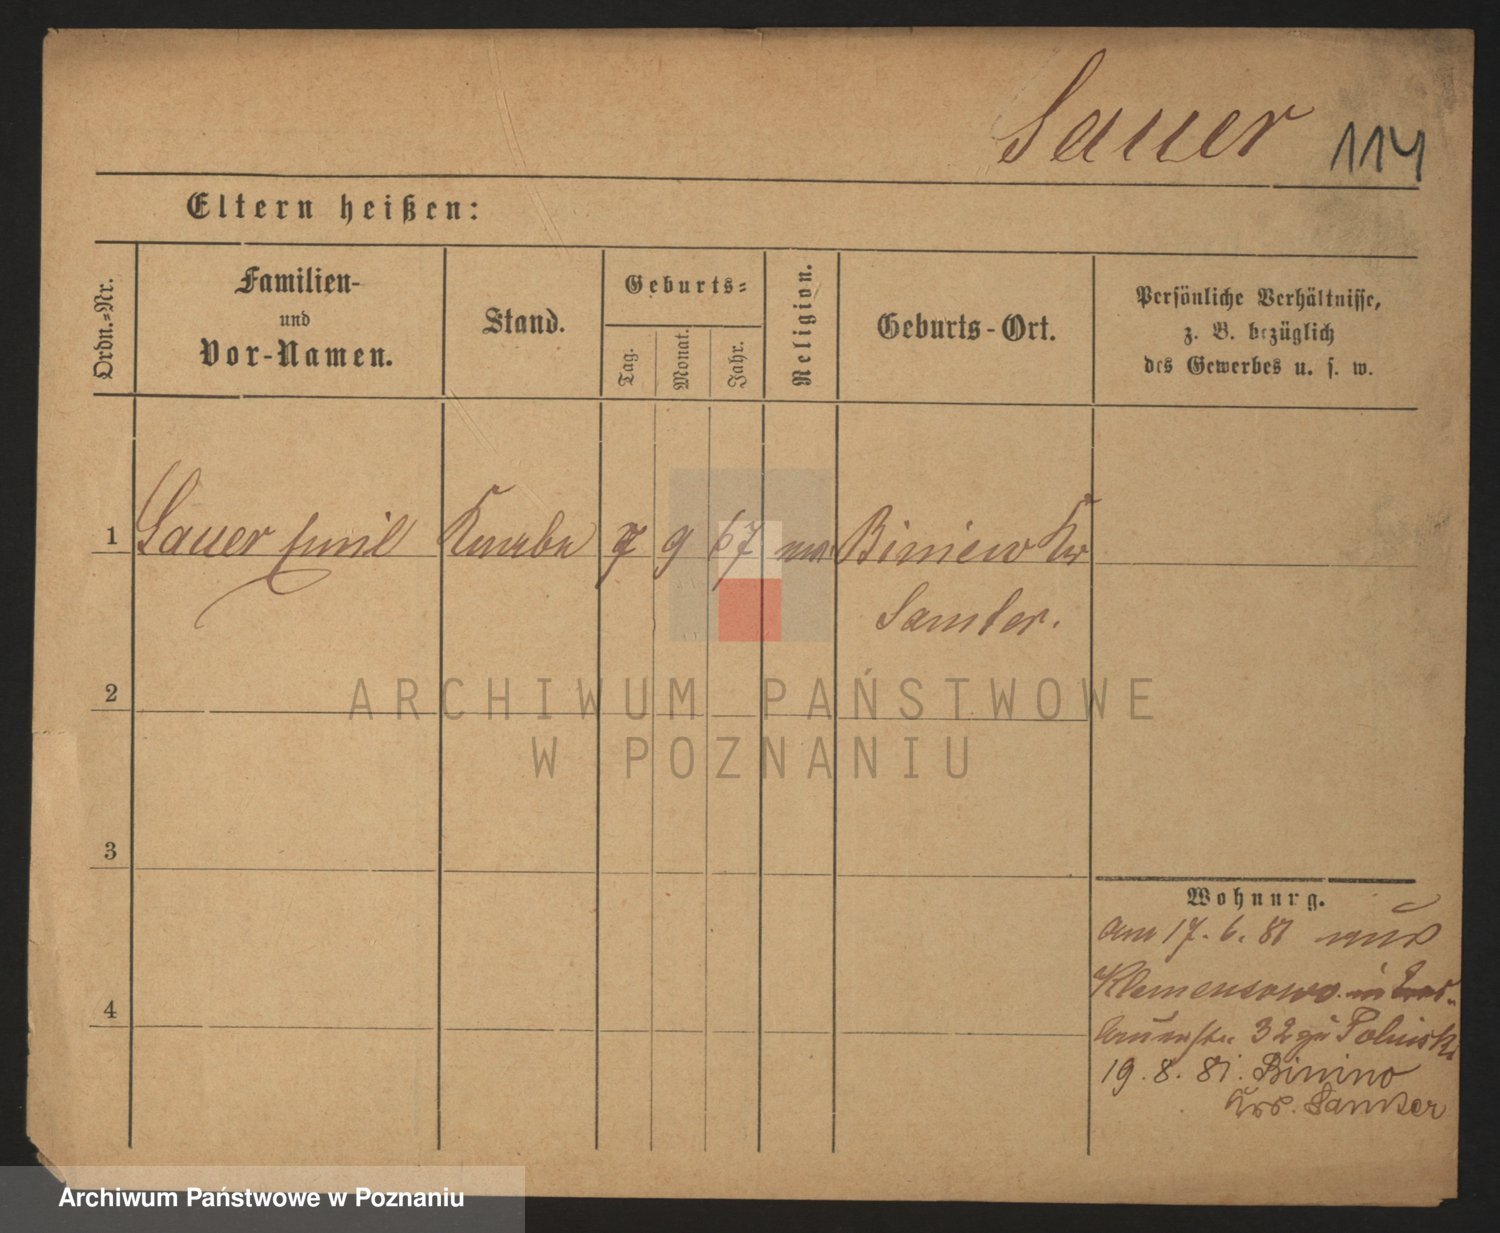 Sauer 114
Eltern heißen:
Ordn.-Nr.
Familien-
und
Vor-Namen.
Stand.
Geburts-
Tag.
Monat.
Jahr.
Religion.
Geburts-Ort.
Persönliche Verhältnisse,
z. B. bezüglich
des Gewerbes u. s. w.
1 Sauer Emil Knabe 7 9 67 Biniew Kr
Samter.
2
ARCHIWUM PAŃSTWOWE
W POZNANIU
3
4
Wohnung.
am 17. 6. 81 aus
Klemensowo in
32 zu
19. 8. 81. Binino
Krs. Samter
Archiwum Państwowe w Poznaniu